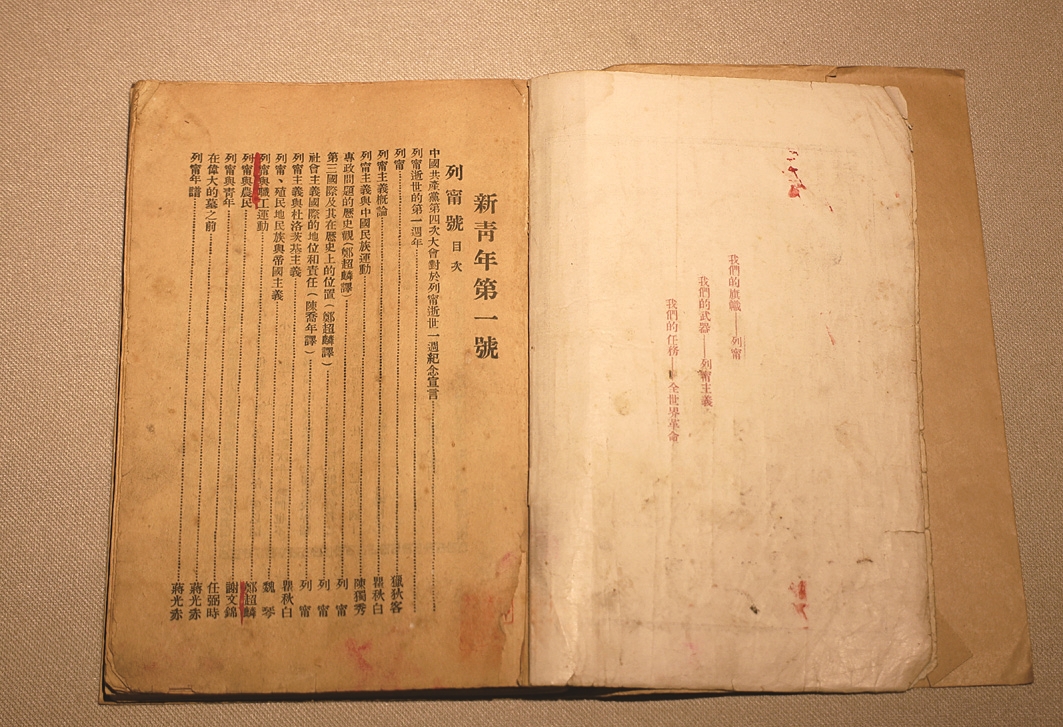 我們的旗幟——列甯
我們的武器——列甯主義
我們的任務——全世界革命
新青年第一號
列甯號 目次
中國共產黨第四次大會對於列甯逝世一週紀念宣言
列甯逝世的第一週年
列甯 獵狄客
列甯主義概論 瞿秋白
列甯主義與中國民族運動 陳獨秀
專政問題的歷史觀(鄭超麟譯) 列甯
第三國際及其在歷史上的位置(鄭超麟譯) 列甯
社會主義國際的地位和責任(陳喬年譯) 列甯
列甯主義與杜洛茨基主義 瞿秋白
列甯、殖民地民族與帝國主義 魏琴
列甯與職工運動 鄭超麟
列甯與農民 謝文錦
列甯與青年 任弼時
在偉大的墓之前 蔣光赤
列甯年譜 蔣光赤